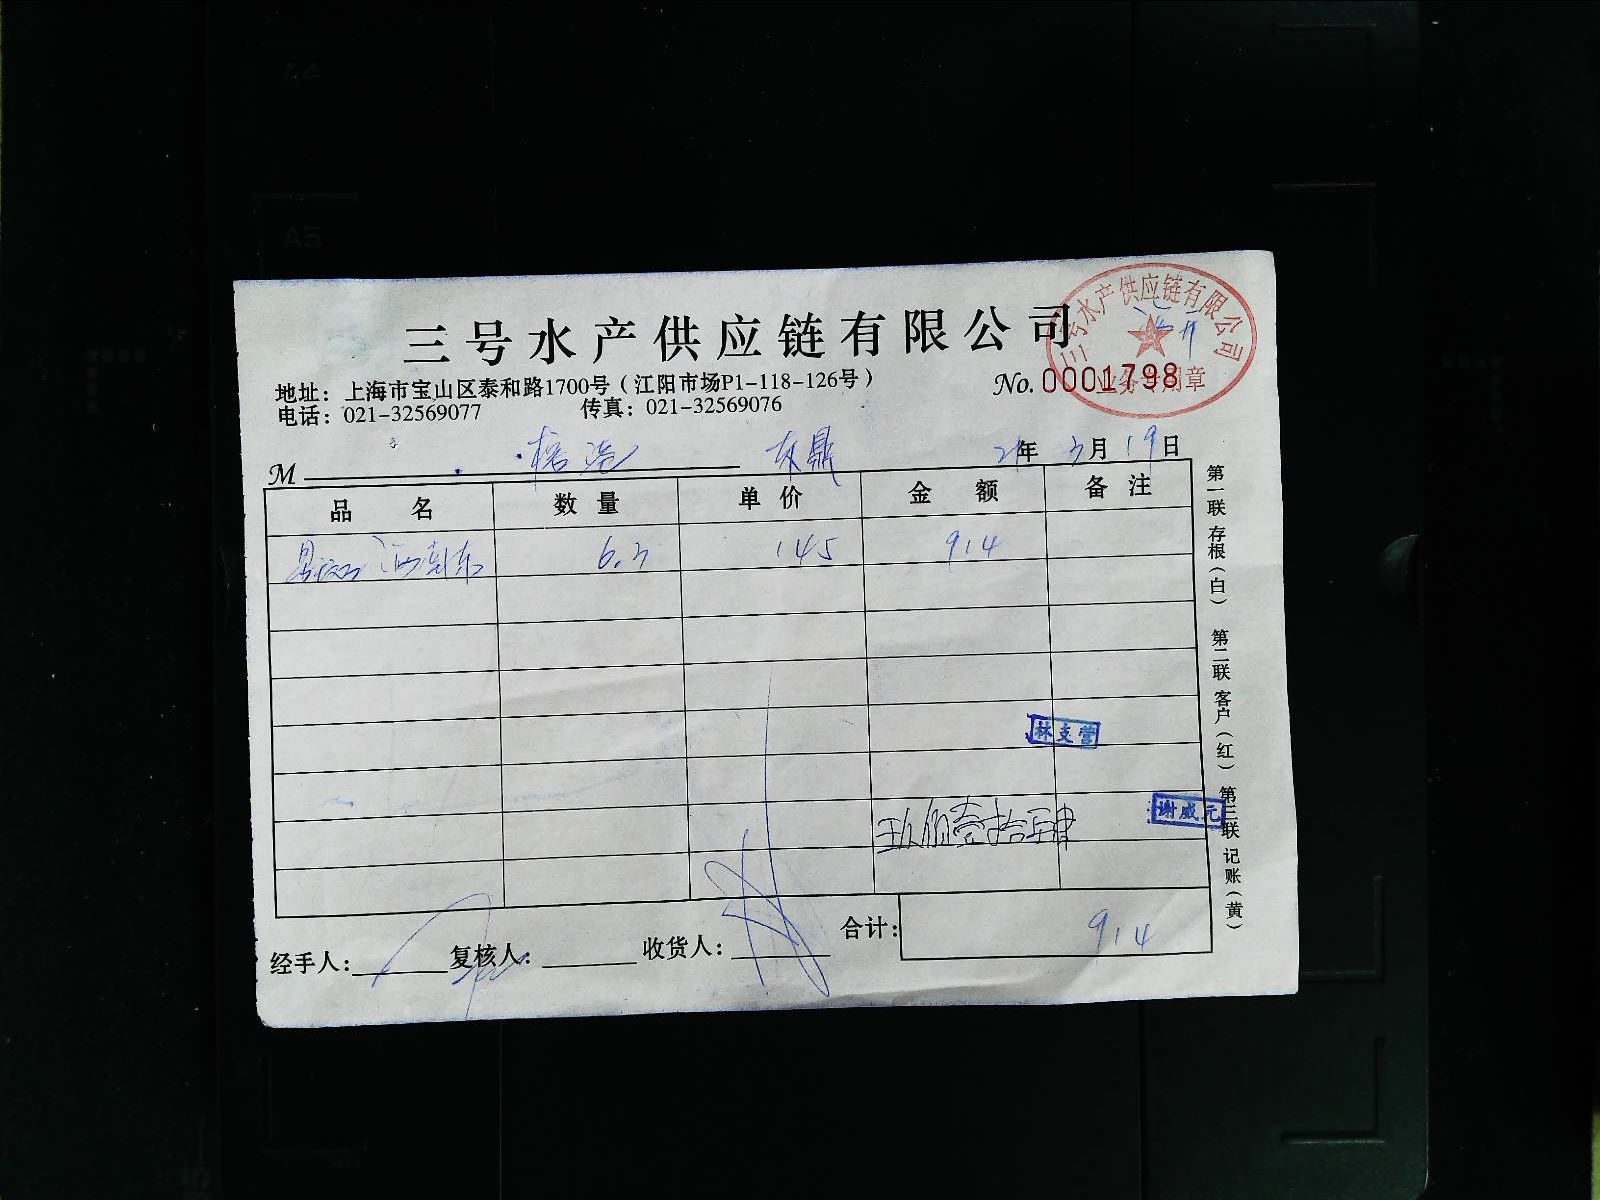 三号水产供应链有限公司
三号水产供应链有限公司
业务专用章
地址：上海市宝山区泰和路1700号（江阳市场P1-118-126号）
No. 0001798
电话：021-32569077 传真：021-32569076
M 东鼎 21年 3月 19日
品名 数量 单价 金额 备注
6.3 145 914
林支营
谢威元
玖佰壹拾肆
合计： 914
经手人： 复核人： 收货人：
第一联存根（白） 第二联客户（红） 第三联记账（黄）
A4
A5